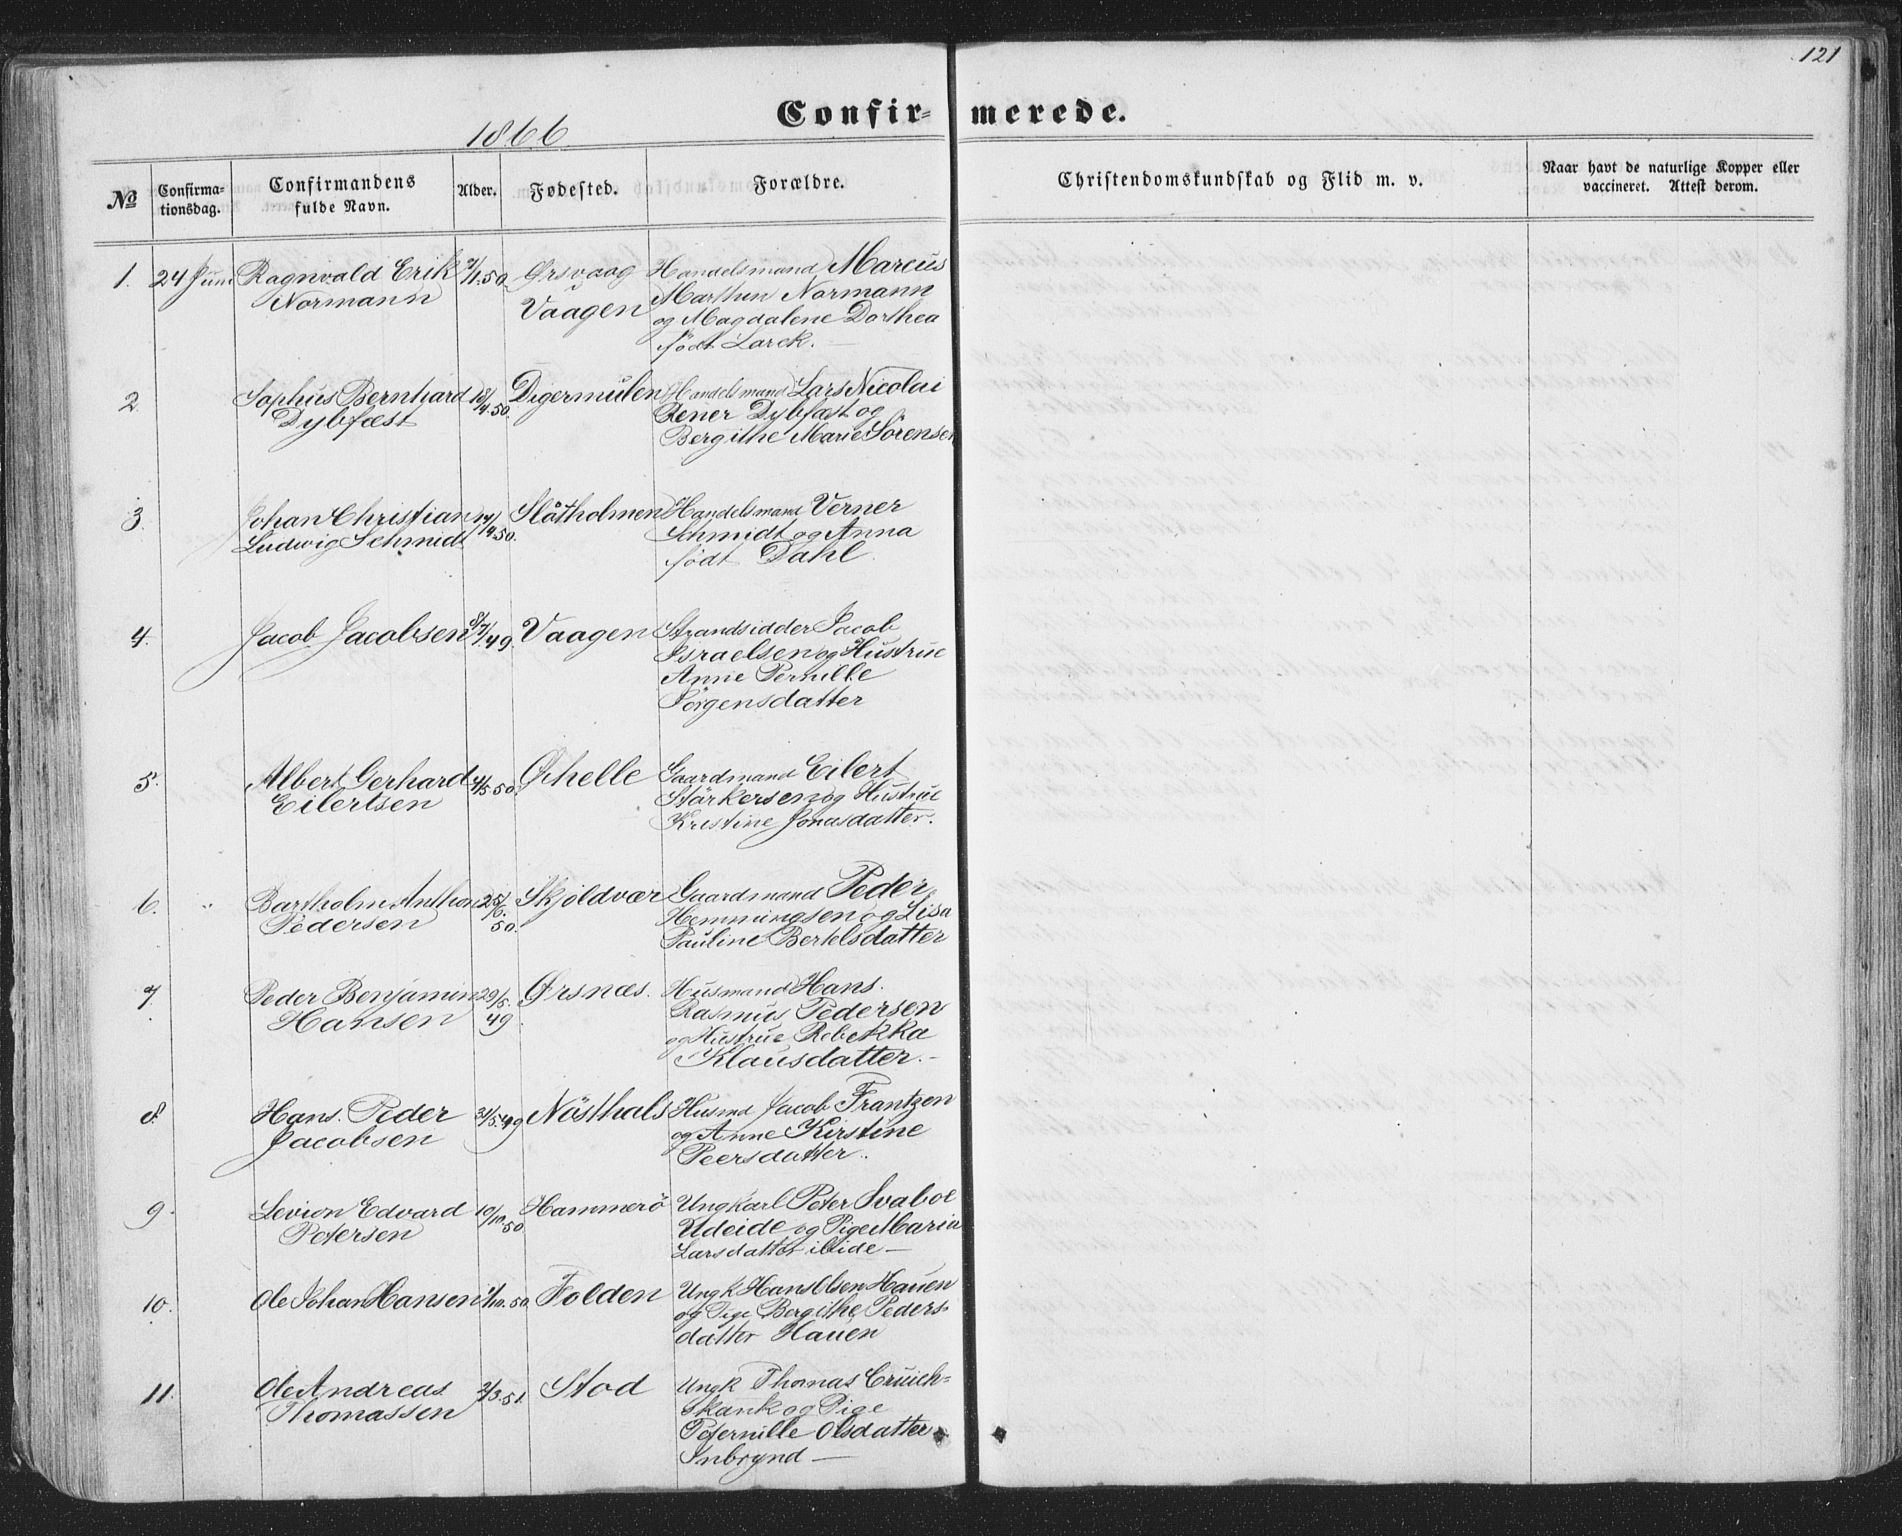 121
Confir- merede.
1866
No
Confirma-
tionsdag.
Confirmandens
fulde Navn.
Alder.
Fødested.
Forældre.
Christendomskundskab og Flid m. v.
Naar havt de naturlige Kopper eller
vaccineret. Attest derom.
1. 24 Juni Ragnvald Erik 50. Ørsvaag Handelsmand Marcus
Normann Vaagen Marthin Normann
og Magdalene Dorthea
født Lorck. —
2. Sophus Bernhard 18/4. 50. Digermulen Handelsmand Lars Nicolai
Dybfæst Jener Dybfæst og
Bergithe Marie Sørensen
3. Johan Christian 14/4 50. Slåtholmen Handelsmand Verner
Ludwig Schmidt Schmidt og Anna
født Dahl.
4. Jacob Jacobsen 8/7. 49. Vaagen Strandsidder Jacob
Israelsen og Hustrue
Anne Pernille
Jörgensdatter
5. Albert Gerhard 4/5 50. Ørhelle Gaardmand Eilert
Eilertsen Stärkersen og Hustrue
Kristine Jonasdatter.
6. " Bartholm Anthon 25/6. 50. Skjoldvær Gaardmand Peder
Pedersen Hemmingsen og Lisa
Pauline Bertelsdatter
7. Peder Benjamin 29/5. 49. Ørsnæs. Husmand Hans.
Hansen Rasmus Pedersen
og Hustrue Rebekka
Klausdatter. —
8. Hans. Peder 31/5. 49 Nösthals Husmd Jacob Frantzen
Jacobsen og Anne Kirstine
Peersdatter.
9. Levion Edvard 10/10. 50. Hammerö Ungkarl Peter Svaboe
Petersen Udeide og Pige Maria
Larsdatter ibide —
10. Ole Johan Hansen 1/10. 50. Folden Ungk Hans Olsen Hauen
og Pige Bergithe Peders-
datter Hauen
11. Ole Andreas 2/3. 51. Stod Ungk Thomas Cruich-
Thomassen Skank og Pige
Peternille Olsdatter
Inbrynd —